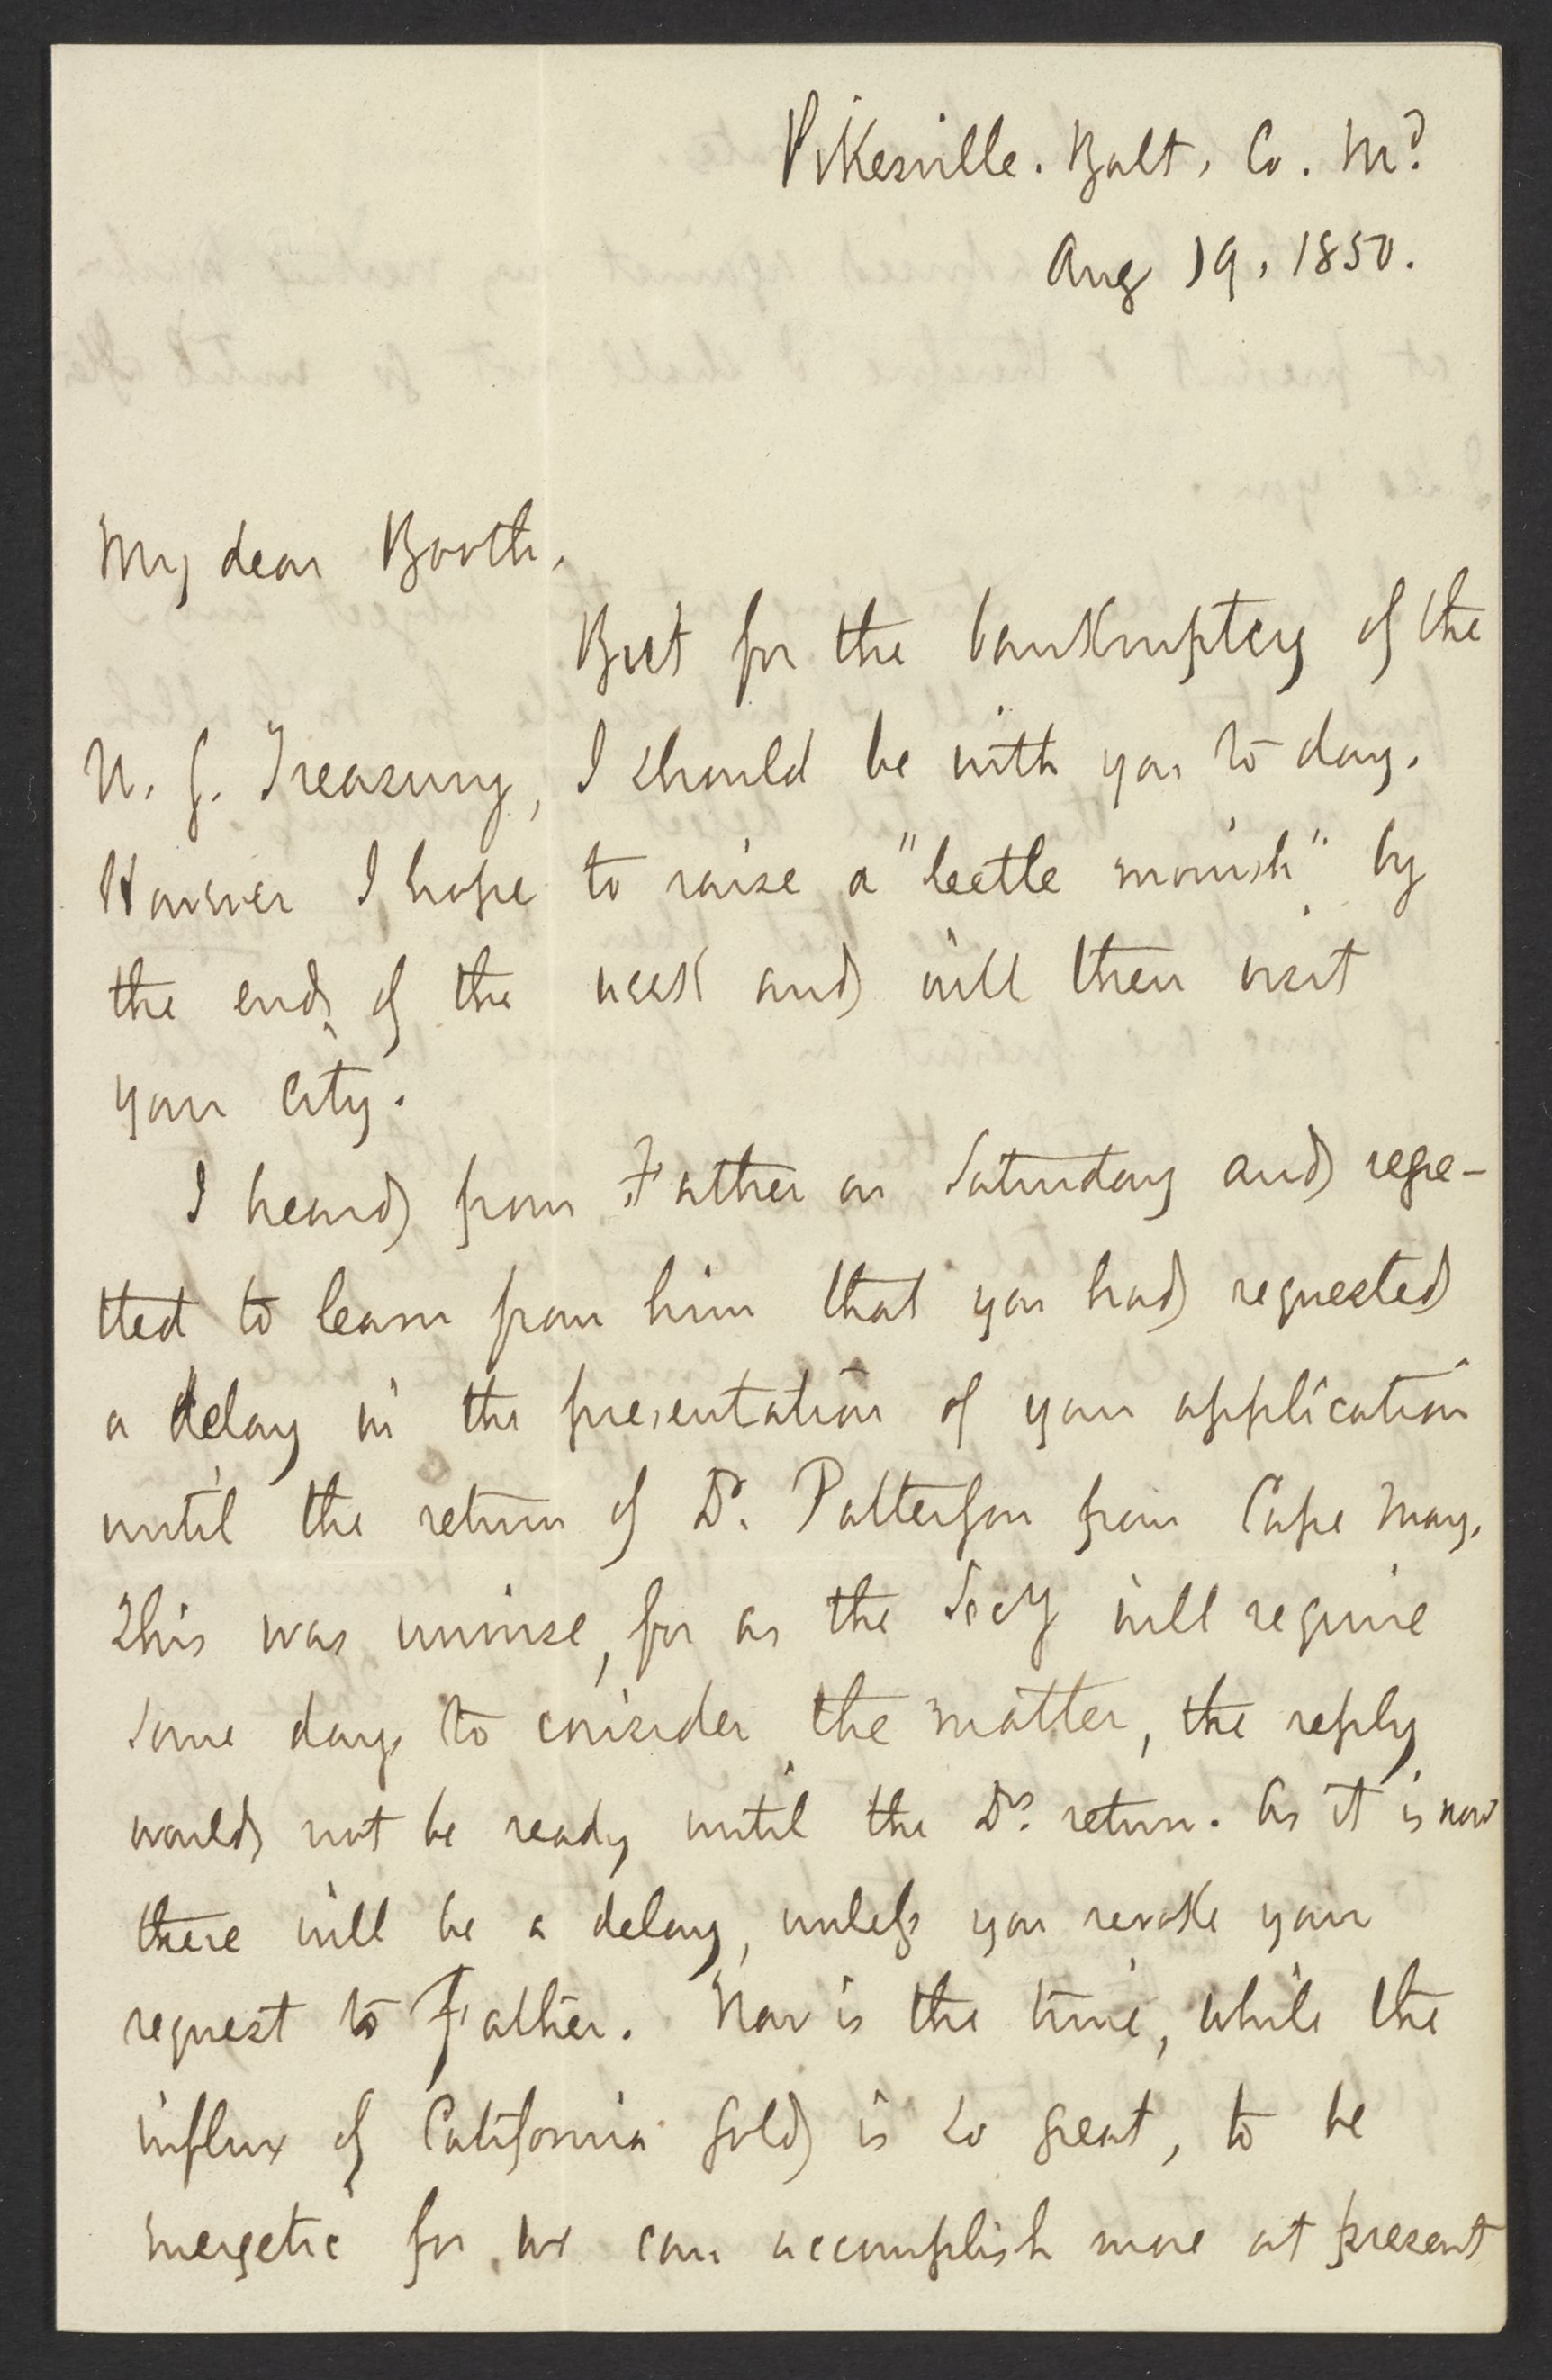 Pikesville. Balt, Co. Md.
Aug 19, 1850.
My dear Booth,
But for the bankruptcy of the
U. S. Treasury, I should be with you to day.
However I hope to raise a "leetle monish" by
the end of the week and will then visit
your city.
I heard from Father on Saturday and regre-
tted to learn from him that you had requested
a delay in the presentation of your application
until the return of Dr. Patterson from Cape May.
This was unwise, for as the Secy will require
some days to consider the matter, the reply
would not be ready until the Drs. return. As it is now
there will be a delay, unless you revoke your
request to Father. Now is the time, while the
influx of California gold is so great, to be
energetic for we can accomplish more at present